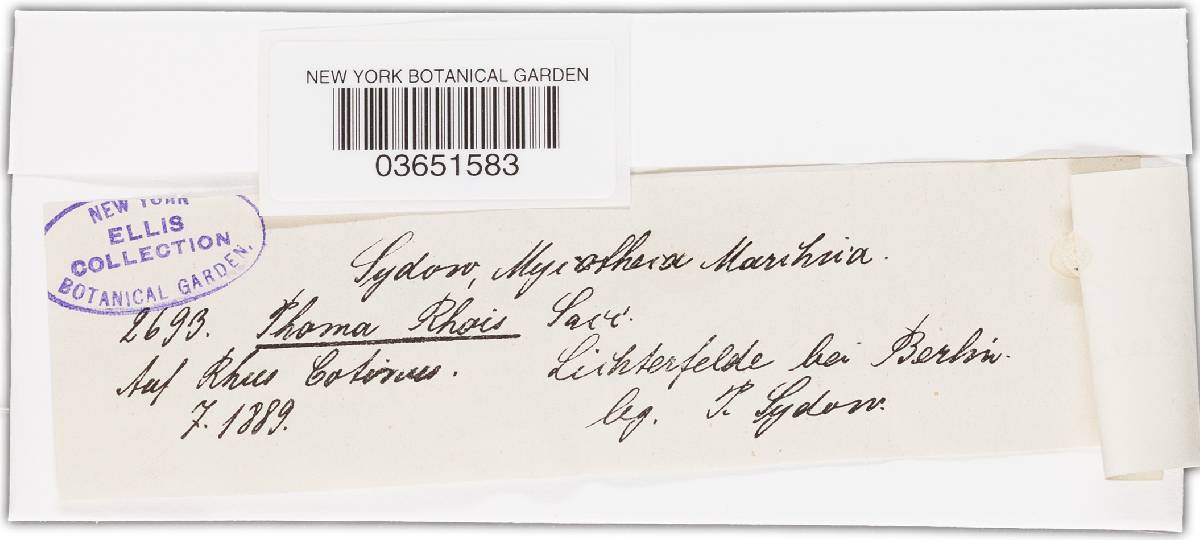 NEW YORK BOTANICAL GARDEN
03651583
NEW YORK
ELLIS
COLLECTION
BOTANICAL GARDEN.
Sydow, Mycotheca Marchica.
2693. Phoma Rhois Sacc.
Auf Rhus Cotinus. Lichterfelde bei Berlin.
7. 1889. leg. P. Sydow.